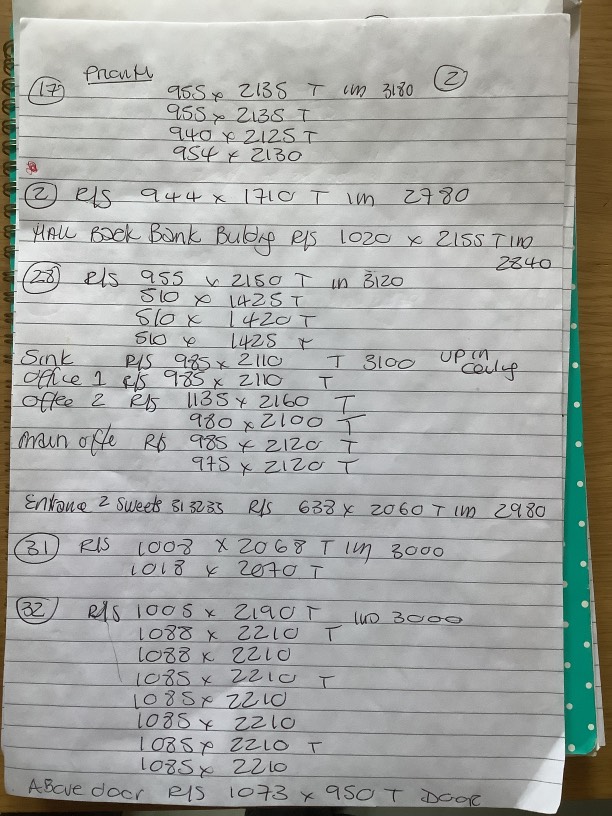 (17) 955 x 2135 T im 3180 (2)
955 x 2135 T
940 x 2125 T
954 x 2130
(2) R/S 944 x 1710 T im 2780
HALL Back Bank Buldng R/S 1020 x 2155 T im
2840
(28) R/S 955 x 2150 T in 3120
510 x 1425 T
510 x 1420 T
510 x 1425 x
Sink R/S 985 x 2110 T 3100 UP in
office 1 R/S 985 x 2110 T
offee 2 R/S 1135 x 2160 T
980 x 2100 T
main offe R/S 985 x 2120 T
975 x 2120 T
Entrane 2 Sweets 31 32 33 R/S 638 x 2060 T im 2980
(31) R/S 1008 x 2068 T im 3000
1018 x 2070 T
(32) R/S 1005 x 2190 T im 3000
1088 x 2210 T
1088 x 2210
1085 x 2210 T
1085 x 2210
1085 x 2210
1085 x 2210 T
1085 x 2210
Above door R/S 1073 x 950 T Door